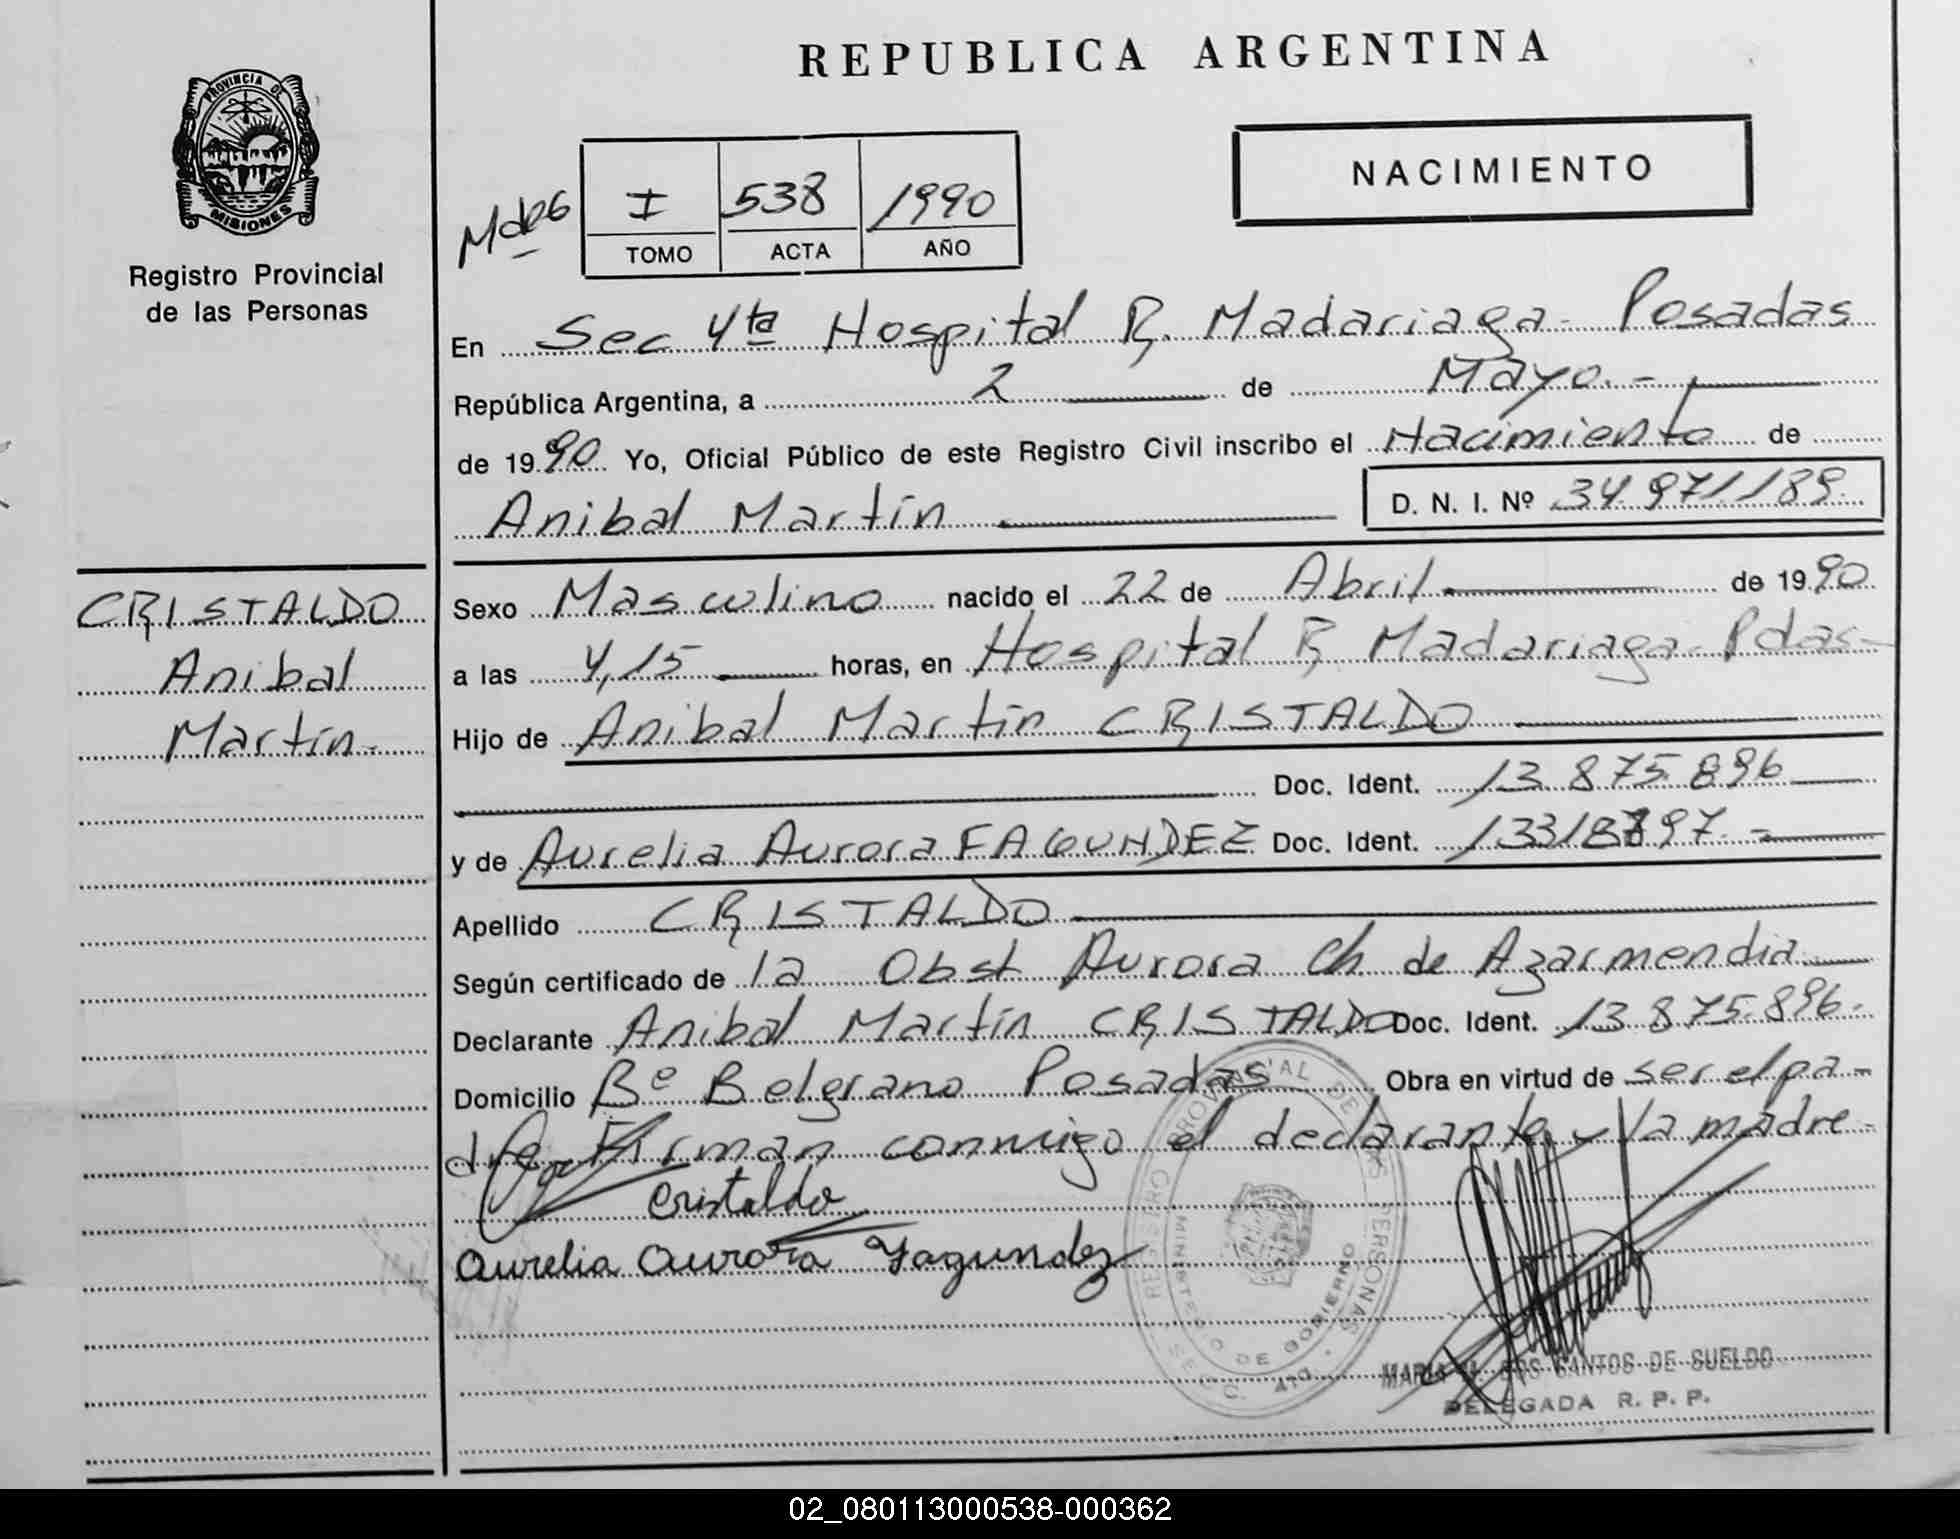 REPUBLICA ARGENTINA
PROVINCIA DE
MISIONES
Registro Provincial
de las Personas
NACIMIENTO
I 538 1990
TOMO ACTA AÑO
En Sec 4ta Hospital R. Madariaga - Posadas
República Argentina, a 2 de Mayo.-
de 1990 Yo, Oficial Público de este Registro Civil inscribo el Nacimiento de
Anibal Martín D. N. I. Nº 34.971.189.
CRISTALDO
Anibal
Martín.
Sexo Masculino nacido el 22 de Abril de 1990
a las 4,15 horas, en Hospital R. Madariaga - Pdas-
Hijo de Anibal Martín CRISTALDO
Doc. Ident. 13.875.896
y de Aurelia Aurora FAGUNDEZ Doc. Ident.
Apellido CRISTALDO
Según certificado de la Obst Aurora Ch de Azarmendia
Declarante Anibal Martín CRISTALDO Doc. Ident. 13.875.896.
Domicilio Bº Belgrano Posadas Obra en virtud de ser el pa-
dre. Firman conmigo el declarante y la madre-
Cristaldo
Aurelia Aurora Fagundez
REGISTRO PROVINCIAL DE LAS PERSONAS
MINISTERIO DE GOBIERNO
SECC. 4ta.
MARIA DOS SANTOS DE SUELDO
DELEGADA R. P. P.
02_080113000538-000362